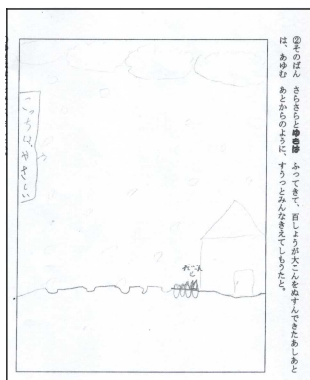 ②そのばん　さらさらとゆきは　ふってきて、百しょうが大こんをぬすんできたあしあと
は、あゆむ　あとからのように、すうっとみんなきえてしもうたと。
だいこん